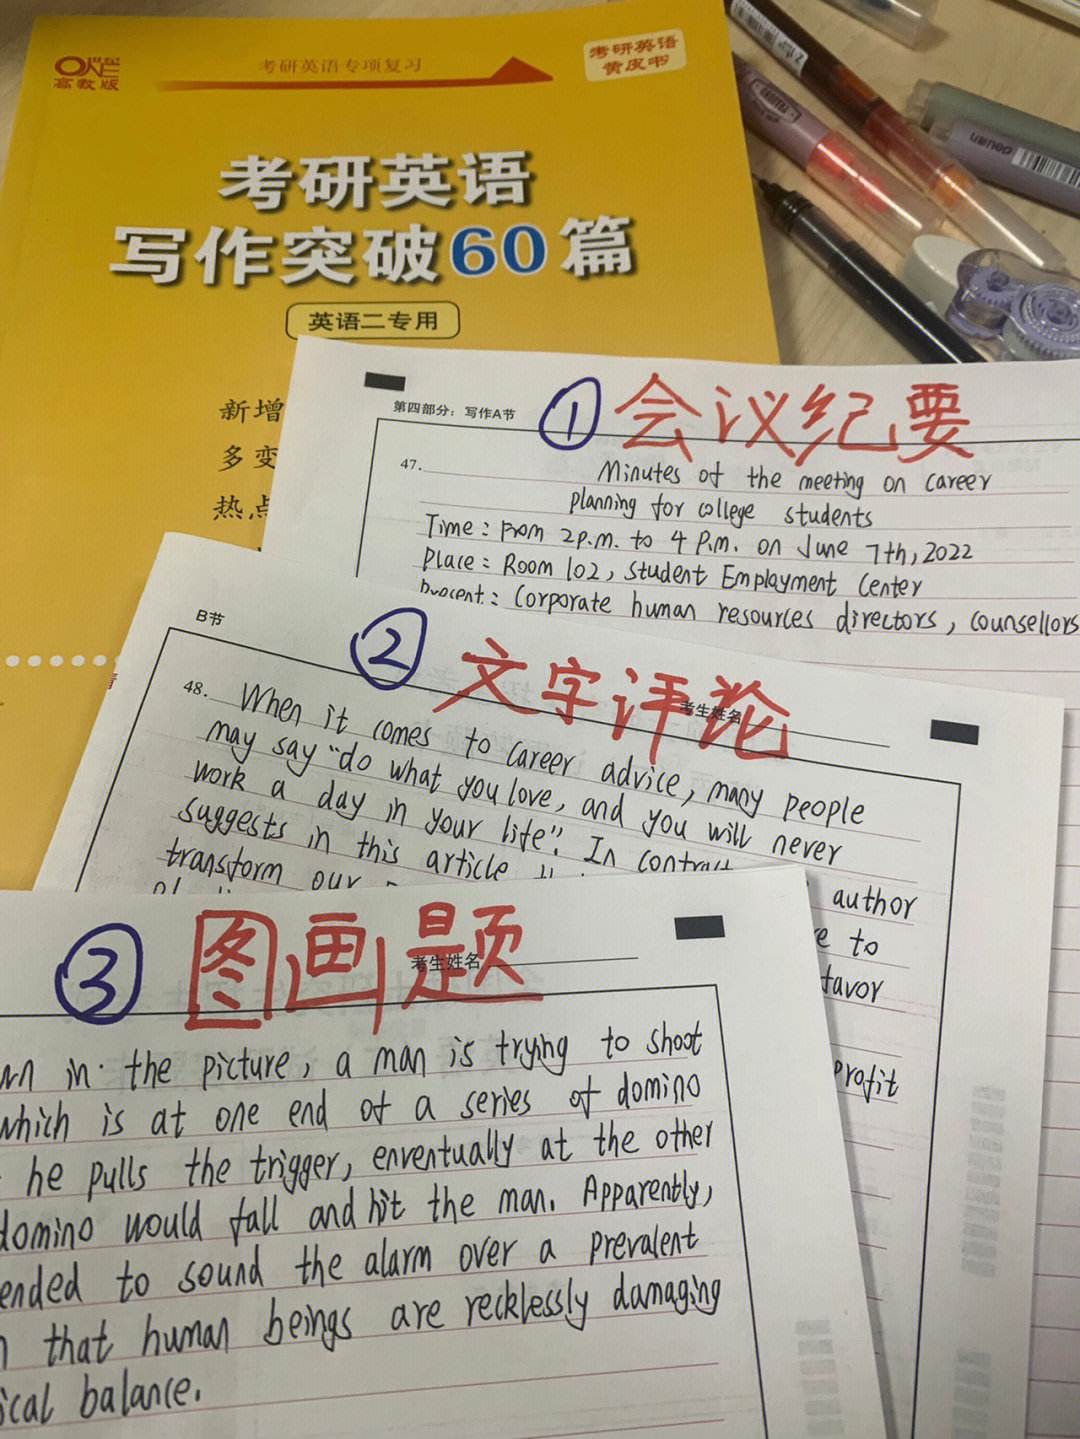 高教版
考研英语专项复习
考研英语
黄皮书
考研英语
写作突破60篇
英语二专用
新增
多变
热点
deli
第四部分：写作A节
① 会议纪要
47. Minutes of the meeting on career
planning for college students
Time: From 2P.m. to 4 P.m. on June 7th, 2022
Place: Room 102, Student Employment Center
Present: Corporate human resources directors, counsellors
B节
② 文字评论
考生姓名
48. When it comes to career advice, many people
may say "do what you love, and you will never
work a day in your life". In contrast author
suggests in this article e to
transform our favor
profit
③ 图画题
考生姓名
in the picture, a man is trying to shoot
which is at one end of a series of domino
he pulls the trigger, enventually at the other
domino would fall and hit the man. Apparently,
ended to sound the alarm over a prevalent
that human beings are recklessly damaging
ical balance.